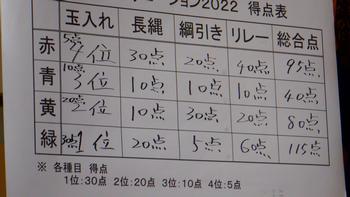 ーション2022 得点表
玉入れ 長縄 綱引き リレー 総合点
赤 5点 位 30点 20点 40点 95点
青 10点 3位 10点 10点 10点 40点
黄 20点 位 10点 30点 20点 80点
緑 30点 1位 20点 5点 60点 115点
※ 各種目 得点
1位:30点 2位:20点 3位:10点 4位:5点